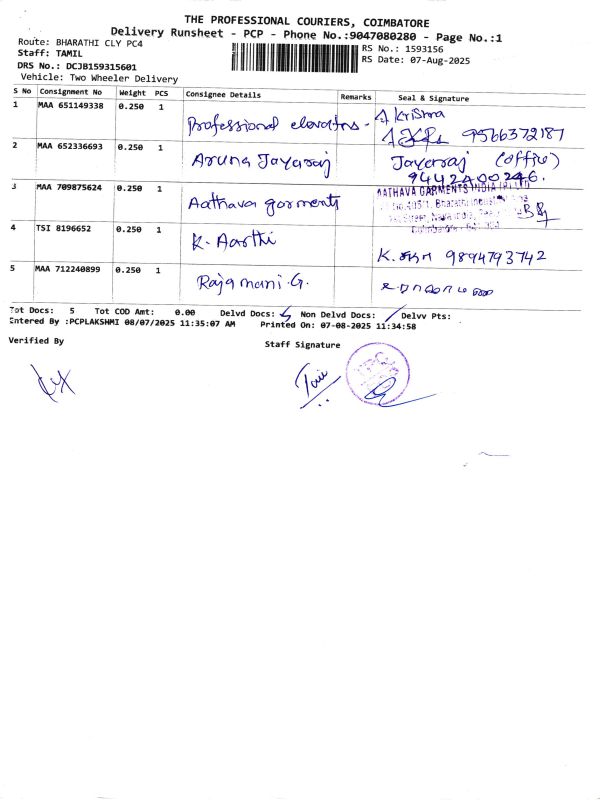 THE PROFESSIONAL COURIERS, COIMBATORE
Delivery Runsheet - PCP - Phone No.:9047080280 - Page No.:1
Route: BHARATHI CLY PC4
RS No.: 1593156
Staff: TAMIL
RS Date: 07-Aug-2025
DRS No.: DCJB159315601
Vehicle: Two Wheeler Delivery
S No Consignment No Weight PCS Consignee Details Remarks Seal & Signature
1 MAA 651149338 0.250 1 Professional elevators - A Krishna
9566372187
2 MAA 652336693 0.250 1 Aruna Jayaraj Jayaraj (office)
9442400246.
3 MAA 709875624 0.250 1 Aathava garments AATHAVA GARMENTS INDIA (P) LTD
4 TSI 8196652 0.250 1 K. Aarthi
K. 9894793742
5 MAA 712240899 0.250 1 Rajamani. G.
Tot Docs: 5 Tot COD Amt: 0.00 Delvd Docs: 5 Non Delvd Docs: / Delvv Pts:
Entered By :PCPLAKSHMI 08/07/2025 11:35:07 AM Printed On: 07-08-2025 11:34:58
Verified By
Staff Signature